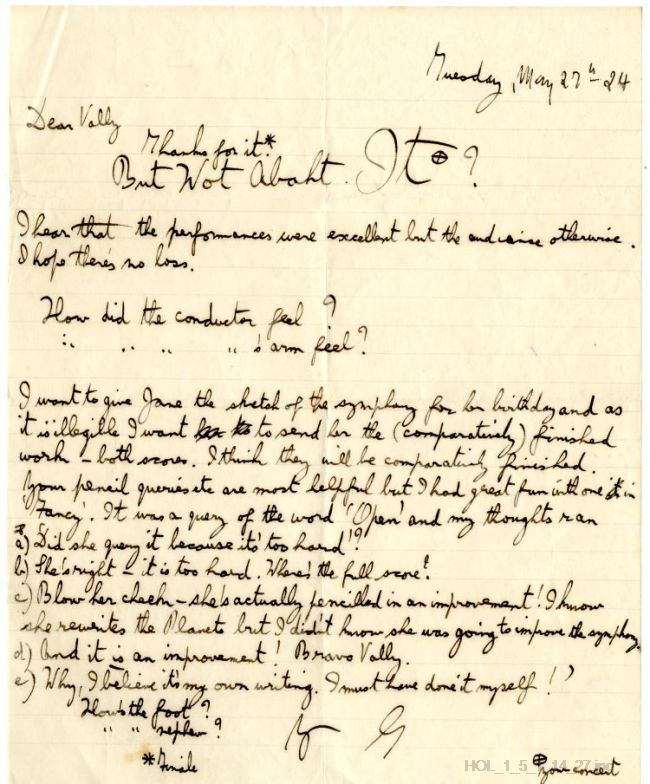 Tuesday, May 27th 24
Dear Vally
Thanks for it*
But Wot Abaht. It⊕ ?
I hear that the performances were excellent but the audience otherwise.
I hope there's no loss.
How did the conductor feel ?
" " " " 's arm feel ?
I want to give Jane the sketch of the symphony for her birthday and as
it is illegible I want to send her the (comparatively) finished
work – both scores. I think they will be comparatively finished.
Your pencil queries etc are most helpful but I had great fun with one in
'Fancy'. It was a query of the word 'Open' and my thoughts ran
a) Did she query it because it's too hard'?
b) She's right – it is too hard. Where's the full score?
c) Blow her cheek – she's actually pencilled in an improvement! I know
she rewrites the Planets but I didn't know she was going to improve the symphony.
d) And it is an improvement! Bravo Vally.
e) Why, I believe it's my own writing. I must have done it myself!'
How's the foot ?
" " nephew ?
G
*Finale
⊕your concert
HOL_1_5_7_14_27.jpg